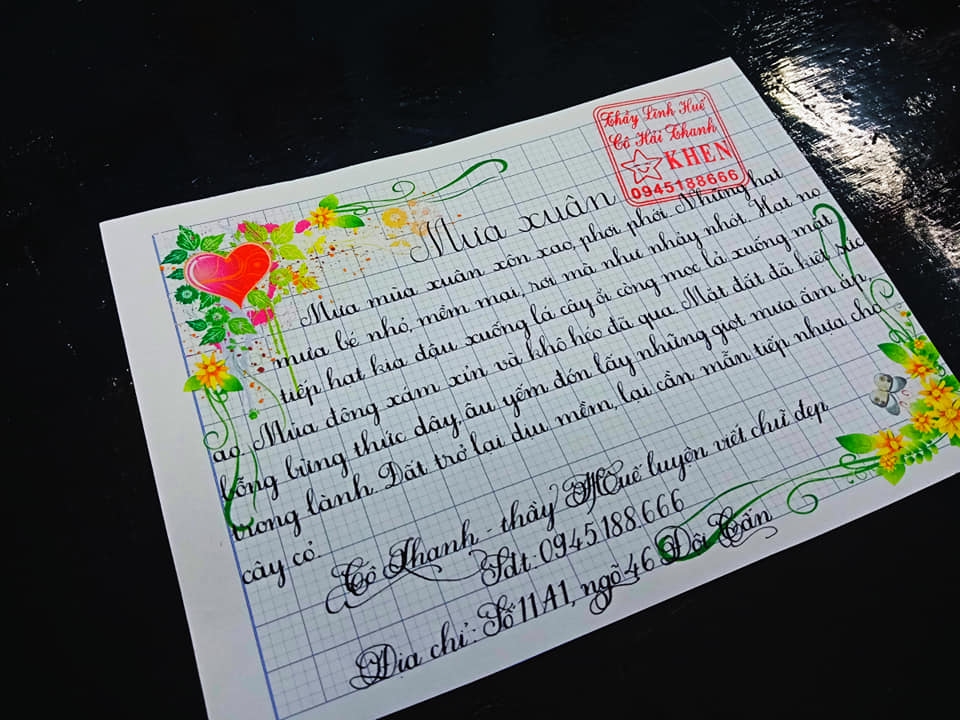 Thầy Lĩnh Huế
Cô Hải Thanh
KHEN
0945188666
Mưa xuân
Mưa mùa xuân xôn xao, phơi phới. Những hạt
mưa bé nhỏ, mềm mại, rơi mà như nhảy nhót. Hạt nọ
tiếp hạt kia đậu xuống lá cây ổi còng mọc lả xuống mặt
ao. Mùa đông xám xỉn và khô héo đã qua. Mặt đất đã kiệt sức
bỗng bừng thức dậy, âu yếm đón lấy những giọt mưa ấm áp,
trong lành. Đất trở lại dịu mềm, lại cần mẫn tiếp nhựa cho
cây cỏ.
Cô Thanh - thầy Huế luyện viết chữ đẹp
Sdt: 0945.188.666
Địa chỉ: Số 11A1, ngõ 46 Đội Cấn